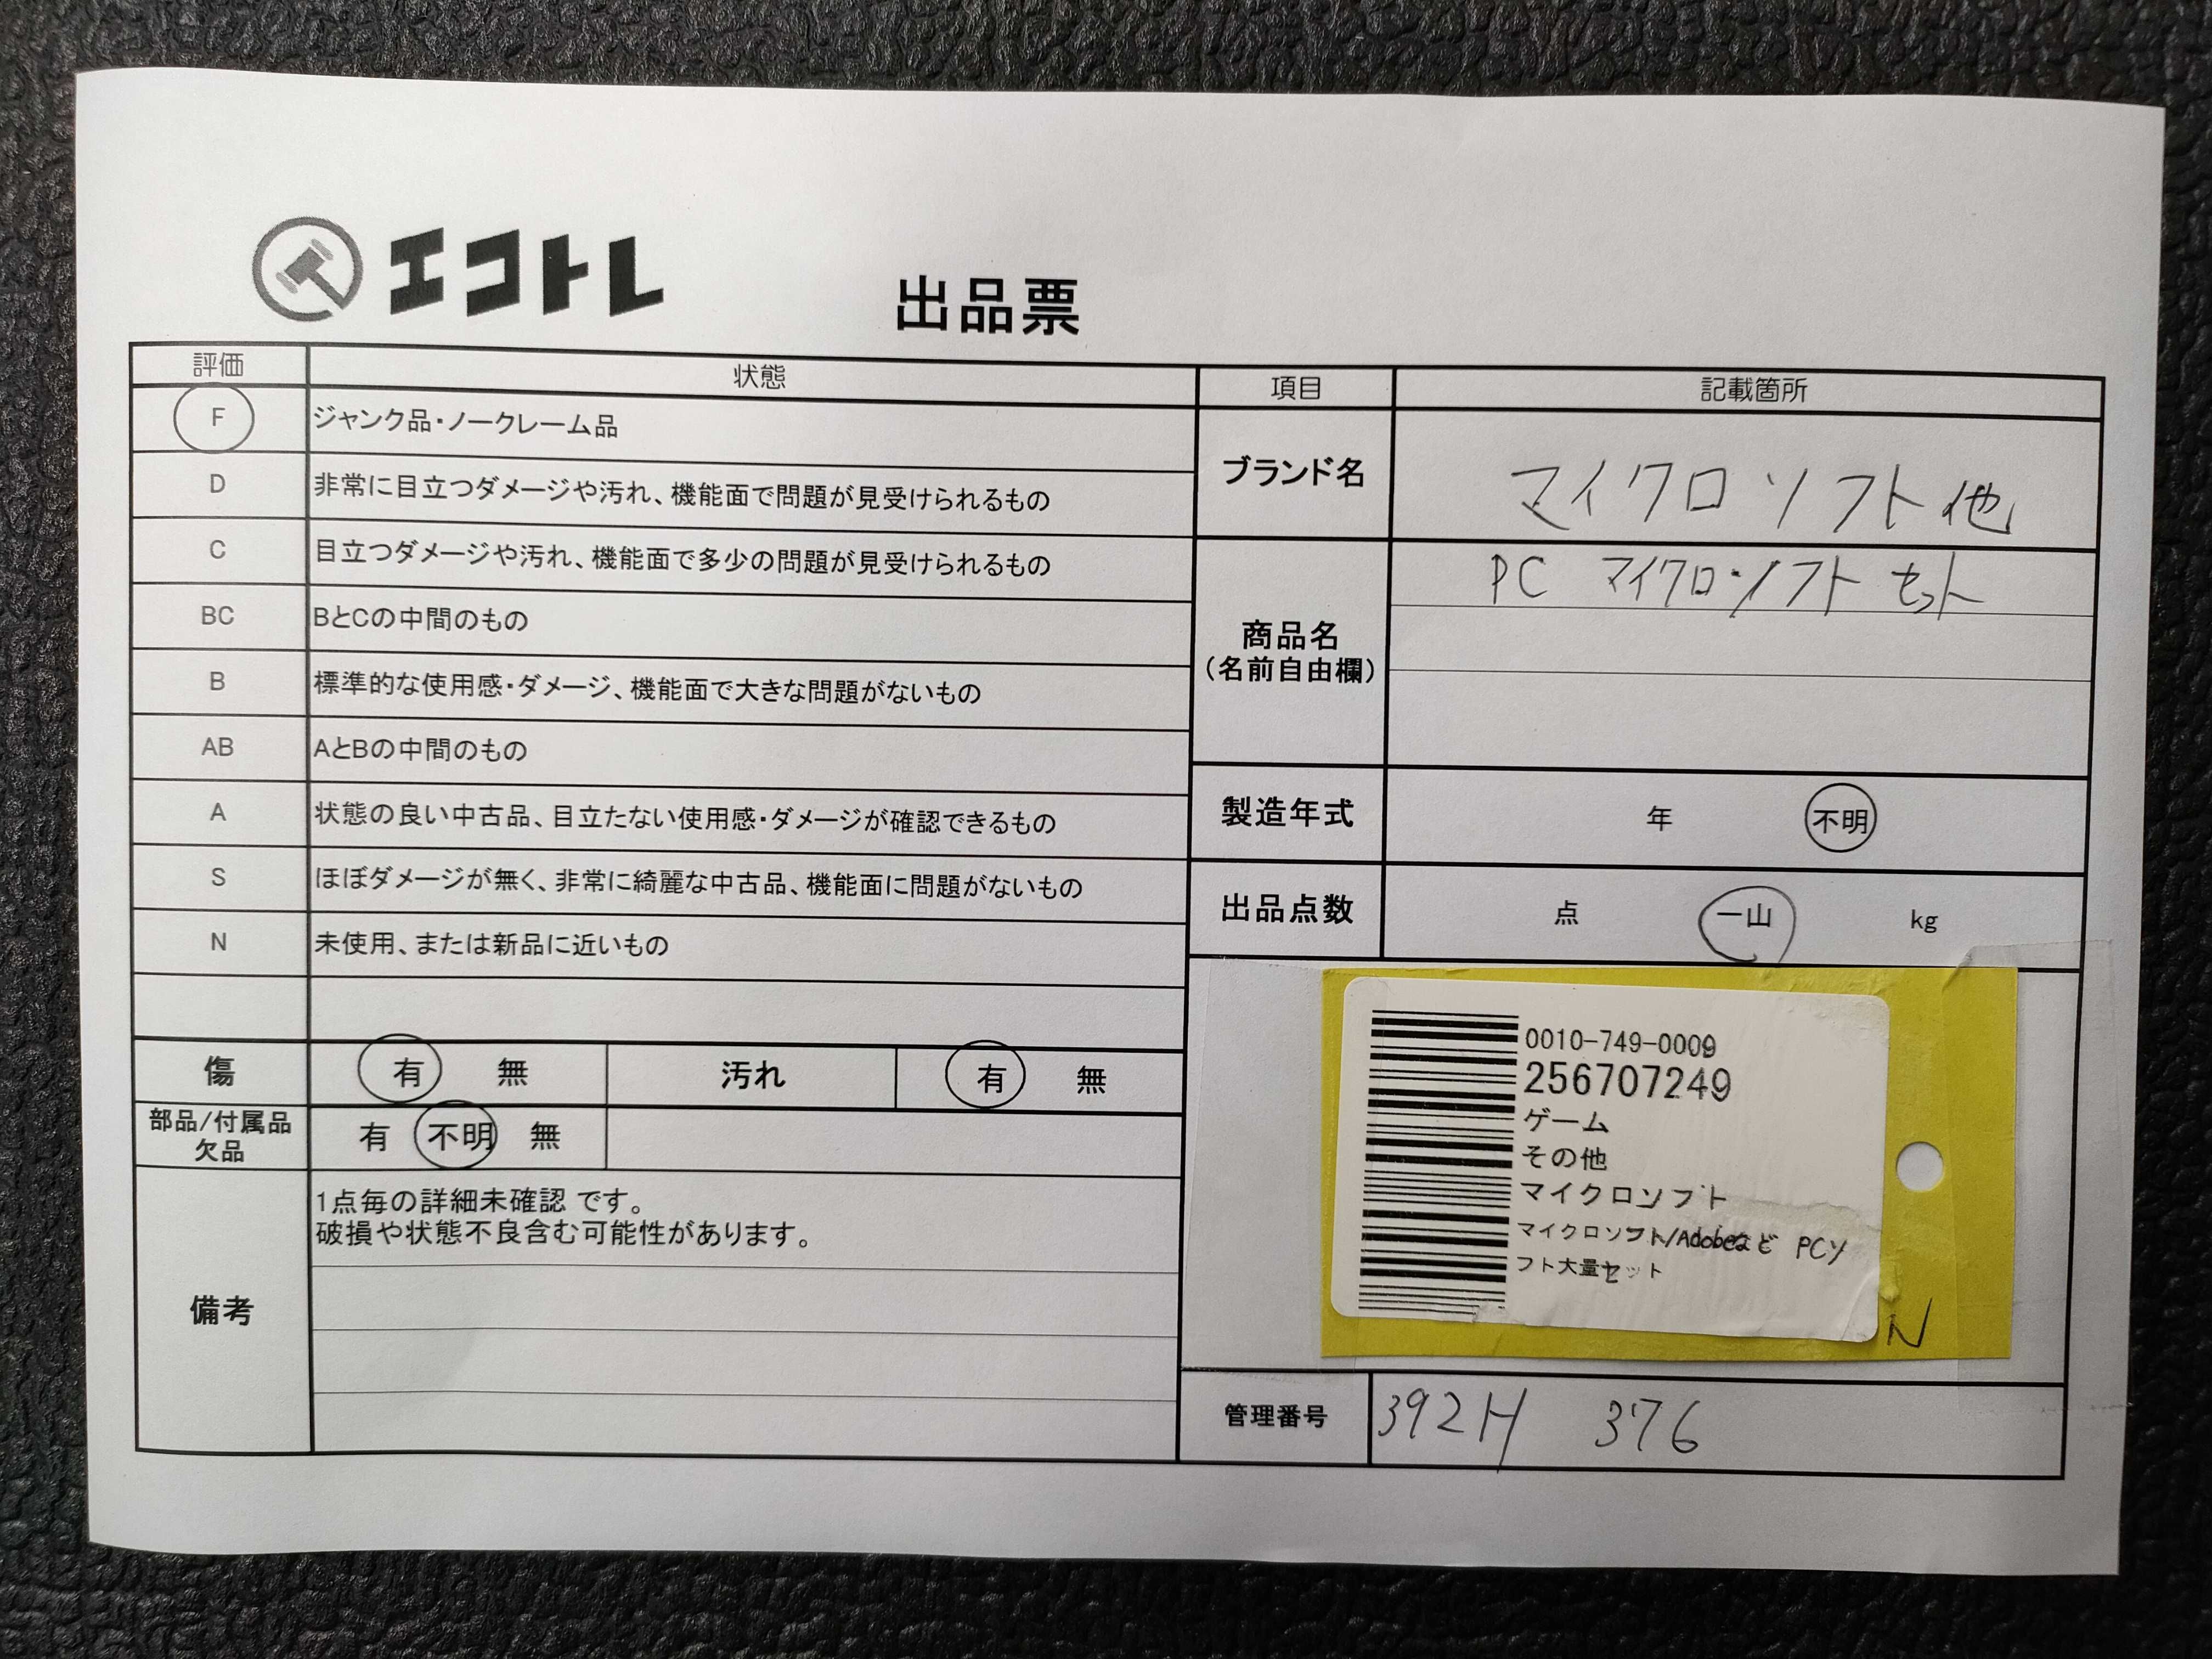 エコトレ
出品票
評価 状態
F ジャンク品・ノークレーム品
D 非常に目立つダメージや汚れ、機能面で問題が見受けられるもの
C 目立つダメージや汚れ、機能面で多少の問題が見受けられるもの
BC BとCの中間のもの
B 標準的な使用感・ダメージ、機能面で大きな問題がないもの
AB AとBの中間のもの
A 状態の良い中古品、目立たない使用感・ダメージが確認できるもの
S ほぼダメージが無く、非常に綺麗な中古品、機能面に問題がないもの
N 未使用、または新品に近いもの
傷 有 無 汚れ 有 無
部品/付属品
欠品
有 不明 無
備考
1点毎の詳細未確認 です。
破損や状態不良含む可能性があります。
項目 記載箇所
ブランド名 マイクロソフト他
商品名
(名前自由欄)
PC マイクロソフト セット
製造年式 年 不明
出品点数 点 一山 kg
0010-749-0009
256707249
ゲーム
その他
マイクロソフト
マイクロソフト/Adobeなど PCソ
フト大量セット
N
管理番号 392H 376